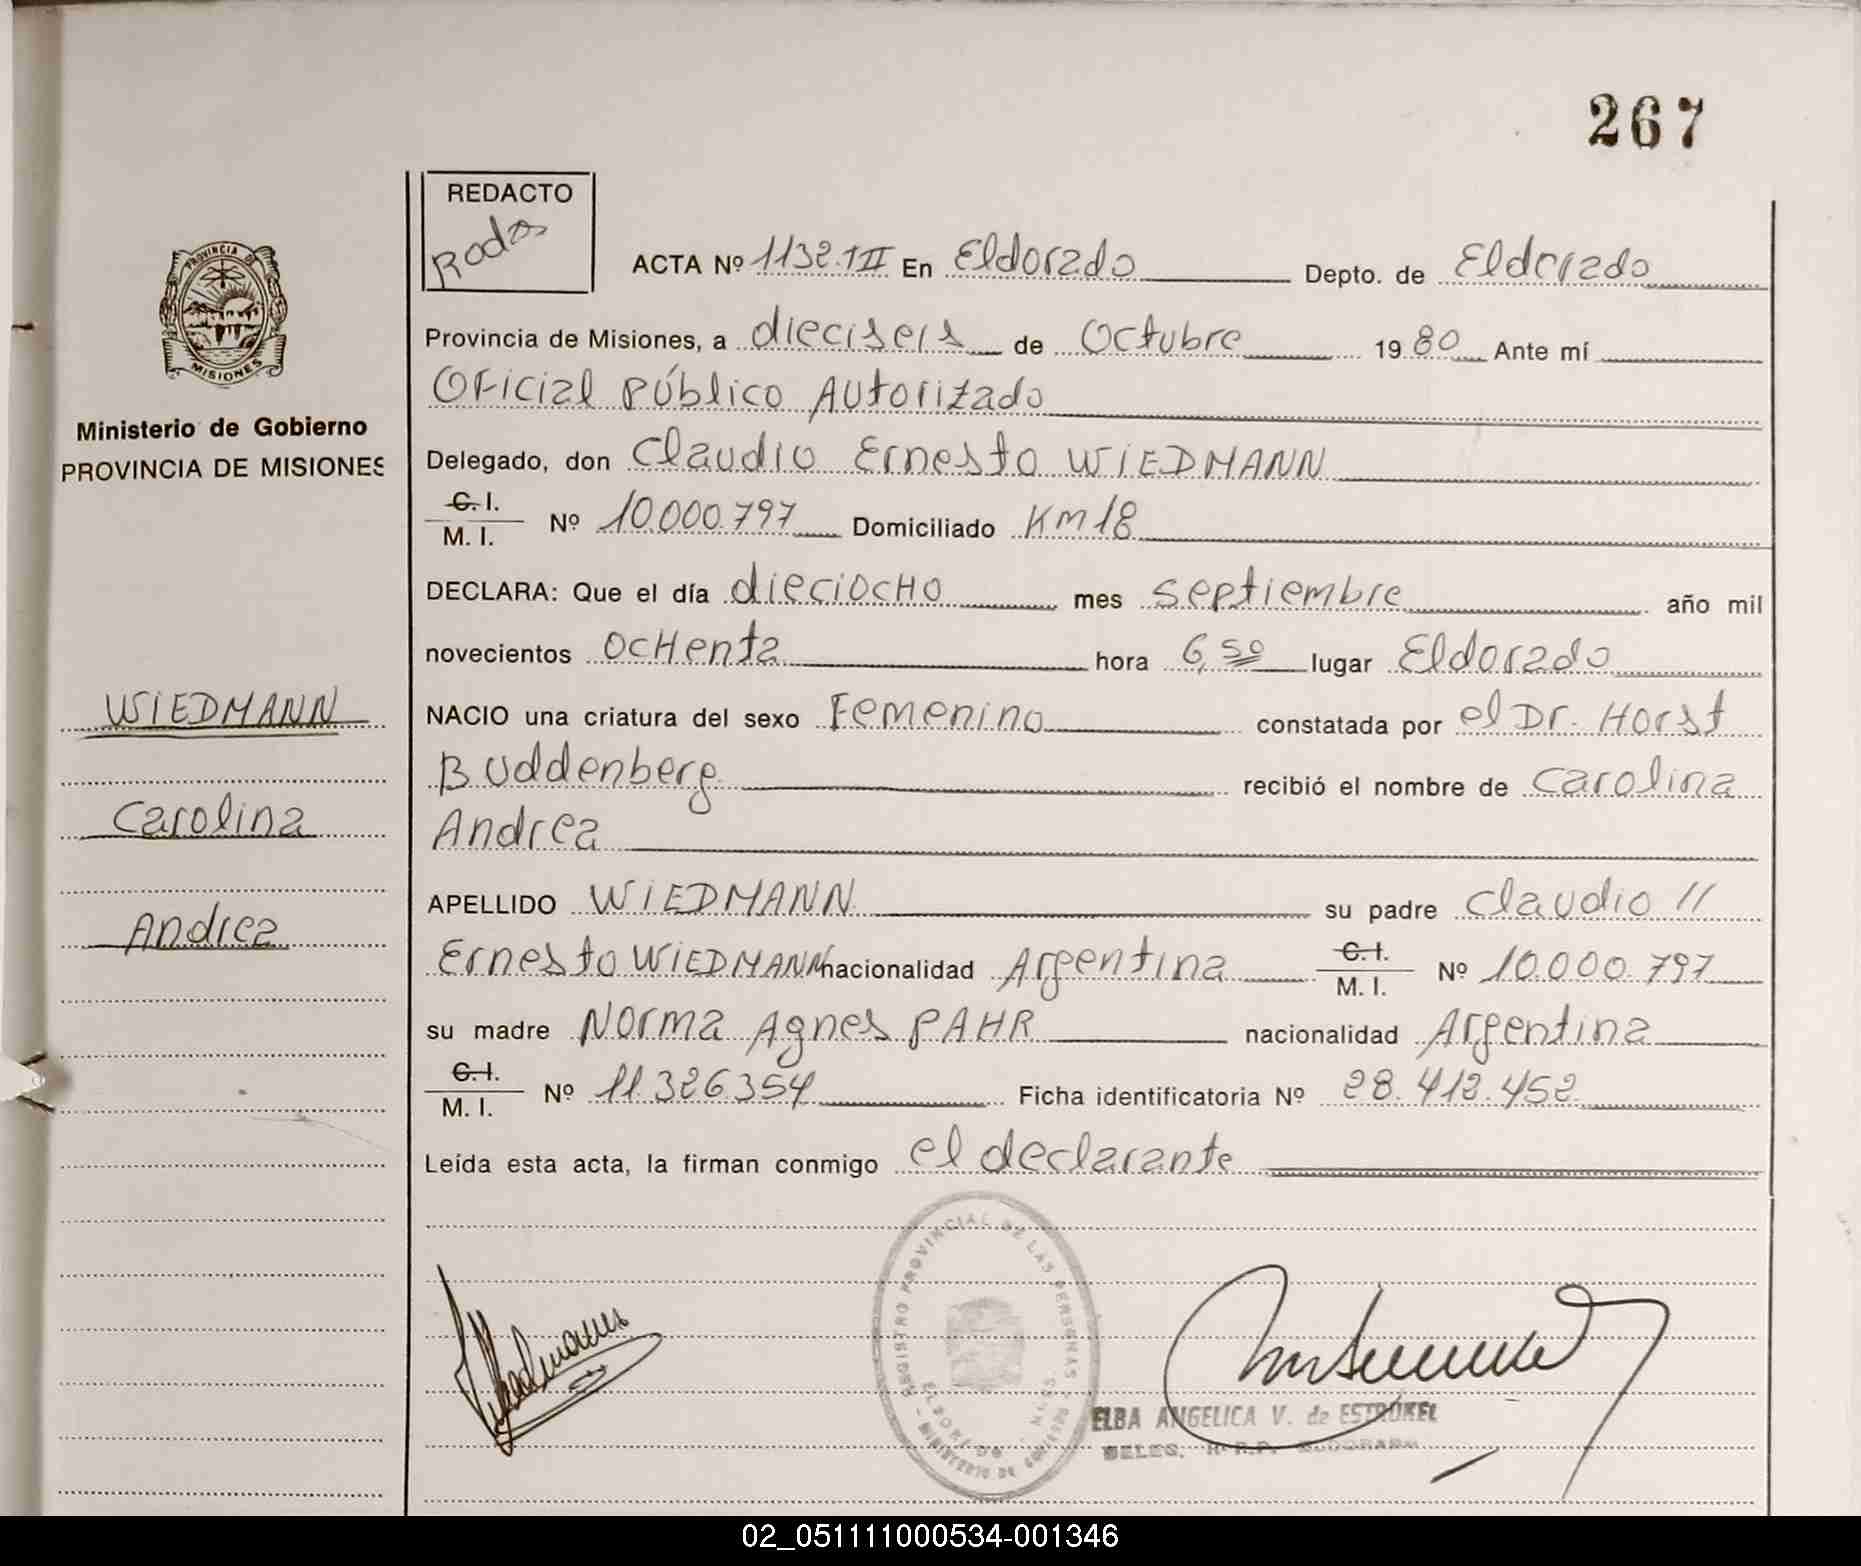 267
REDACTO
Rodas
ACTA Nº 1132.TIII En Eldorado Depto. de Eldorado
Provincia de Misiones, a dieciseis de Octubre 19 80 Ante mí
Oficial Público Autorizado
Delegado, don Claudio Ernesto WIEDMANN
C. I.
M. I. Nº 10.000.797 Domiciliado Km 18
DECLARA: Que el día dieciocHo mes septiembre año mil
novecientos ocHenta hora 6,50 lugar Eldorado
NACIO una criatura del sexo Femenino constatada por el Dr. Horst
Buddenberg recibió el nombre de Carolina
Andrea
APELLIDO WIEDMANN su padre Claudio //
Ernesto WIEDMANN nacionalidad Argentina C. I.
M. I. Nº 10.000.797
su madre Norma Agnes PAHR nacionalidad Argentina
C. I.
M. I. Nº 11.326.354 Ficha identificatoria Nº 28.412.452
Leída esta acta, la firman conmigo el declarante
PROVINCIA DE
MISIONES
Ministerio de Gobierno
PROVINCIA DE MISIONES
WIEDMANN
Carolina
Andrea
REGISTRO PROVINCIAL DE LAS PERSONAS
ELDORADO
MINISTERIO DE GOBIERNO
ELBA ANGELICA V. de ESTRÜKEL
DELEG. R.P.P. ELDORADO
02_051111000534-001346